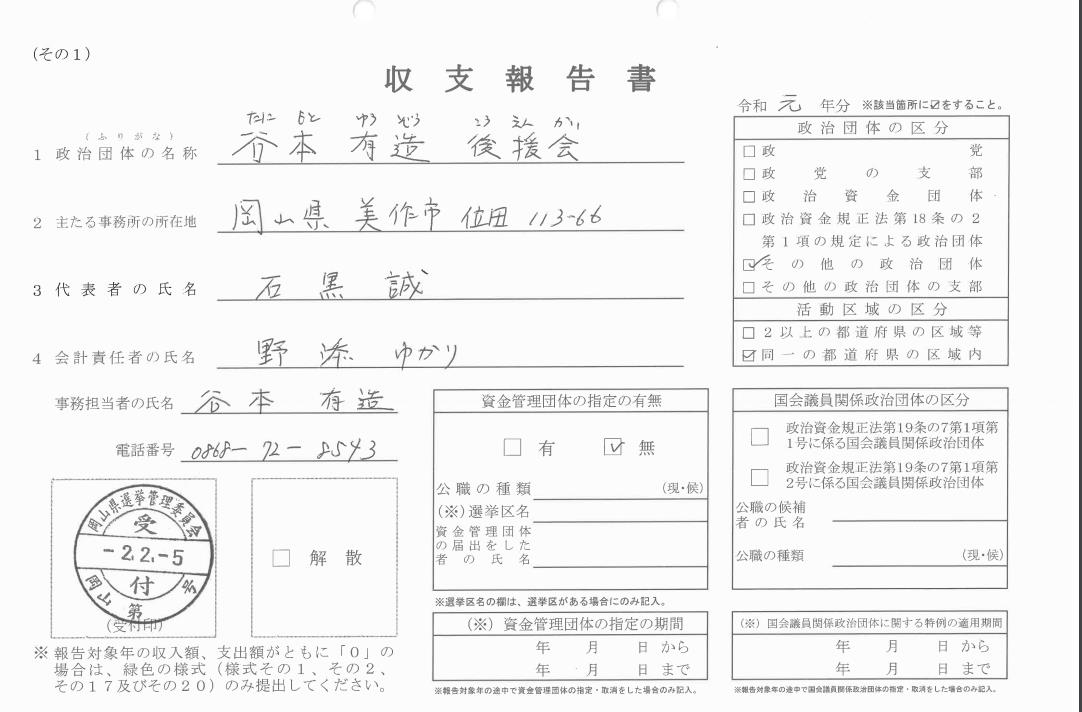 (その1)
収支報告書
令和 元 年分 ※該当箇所に☑をすること。
(ふりがな) たに もと ゆう ぞう こう えん かい
1 政治団体の名称 谷本 有造 後援会
2 主たる事務所の所在地 岡山県 美作市 位田 113-66
3 代表者の氏名 石黒 誠
4 会計責任者の氏名 野添 ゆかり
事務担当者の氏名 谷本 有造
電話番号 0868-72-8543
政治団体の区分
□政党
□政党の支部
□政治資金団体
□政治資金規正法第18条の2
第1項の規定による政治団体
☑その他の政治団体
□その他の政治団体の支部
活動区域の区分
□2以上の都道府県の区域等
☑同一の都道府県の区域内
岡山県選挙管理委員会
受
-2.2.-5
付
岡山 第 号
(受付印)
□ 解散
※報告対象年の収入額、支出額がともに「0」の
場合は、緑色の様式(様式その1、その2、
その17及びその20)のみ提出してください。
資金管理団体の指定の有無
□ 有 ☑ 無
公職の種類 (現・候)
(※)選挙区名
資金管理団体
の届出をした
者の氏名
※選挙区名の欄は、選挙区がある場合にのみ記入。
(※)資金管理団体の指定の期間
年 月 日 から
年 月 日 まで
※報告対象年の途中で資金管理団体の指定・取消をした場合のみ記入。
国会議員関係政治団体の区分
□ 政治資金規正法第19条の7第1項第
1号に係る国会議員関係政治団体
□ 政治資金規正法第19条の7第1項第
2号に係る国会議員関係政治団体
公職の候補
者の氏名
公職の種類 (現・候)
(※)国会議員関係政治団体に関する特例の適用期間
年 月 日 から
年 月 日 まで
※報告対象年の途中で国会議員関係政治団体の指定・取消をした場合のみ記入。